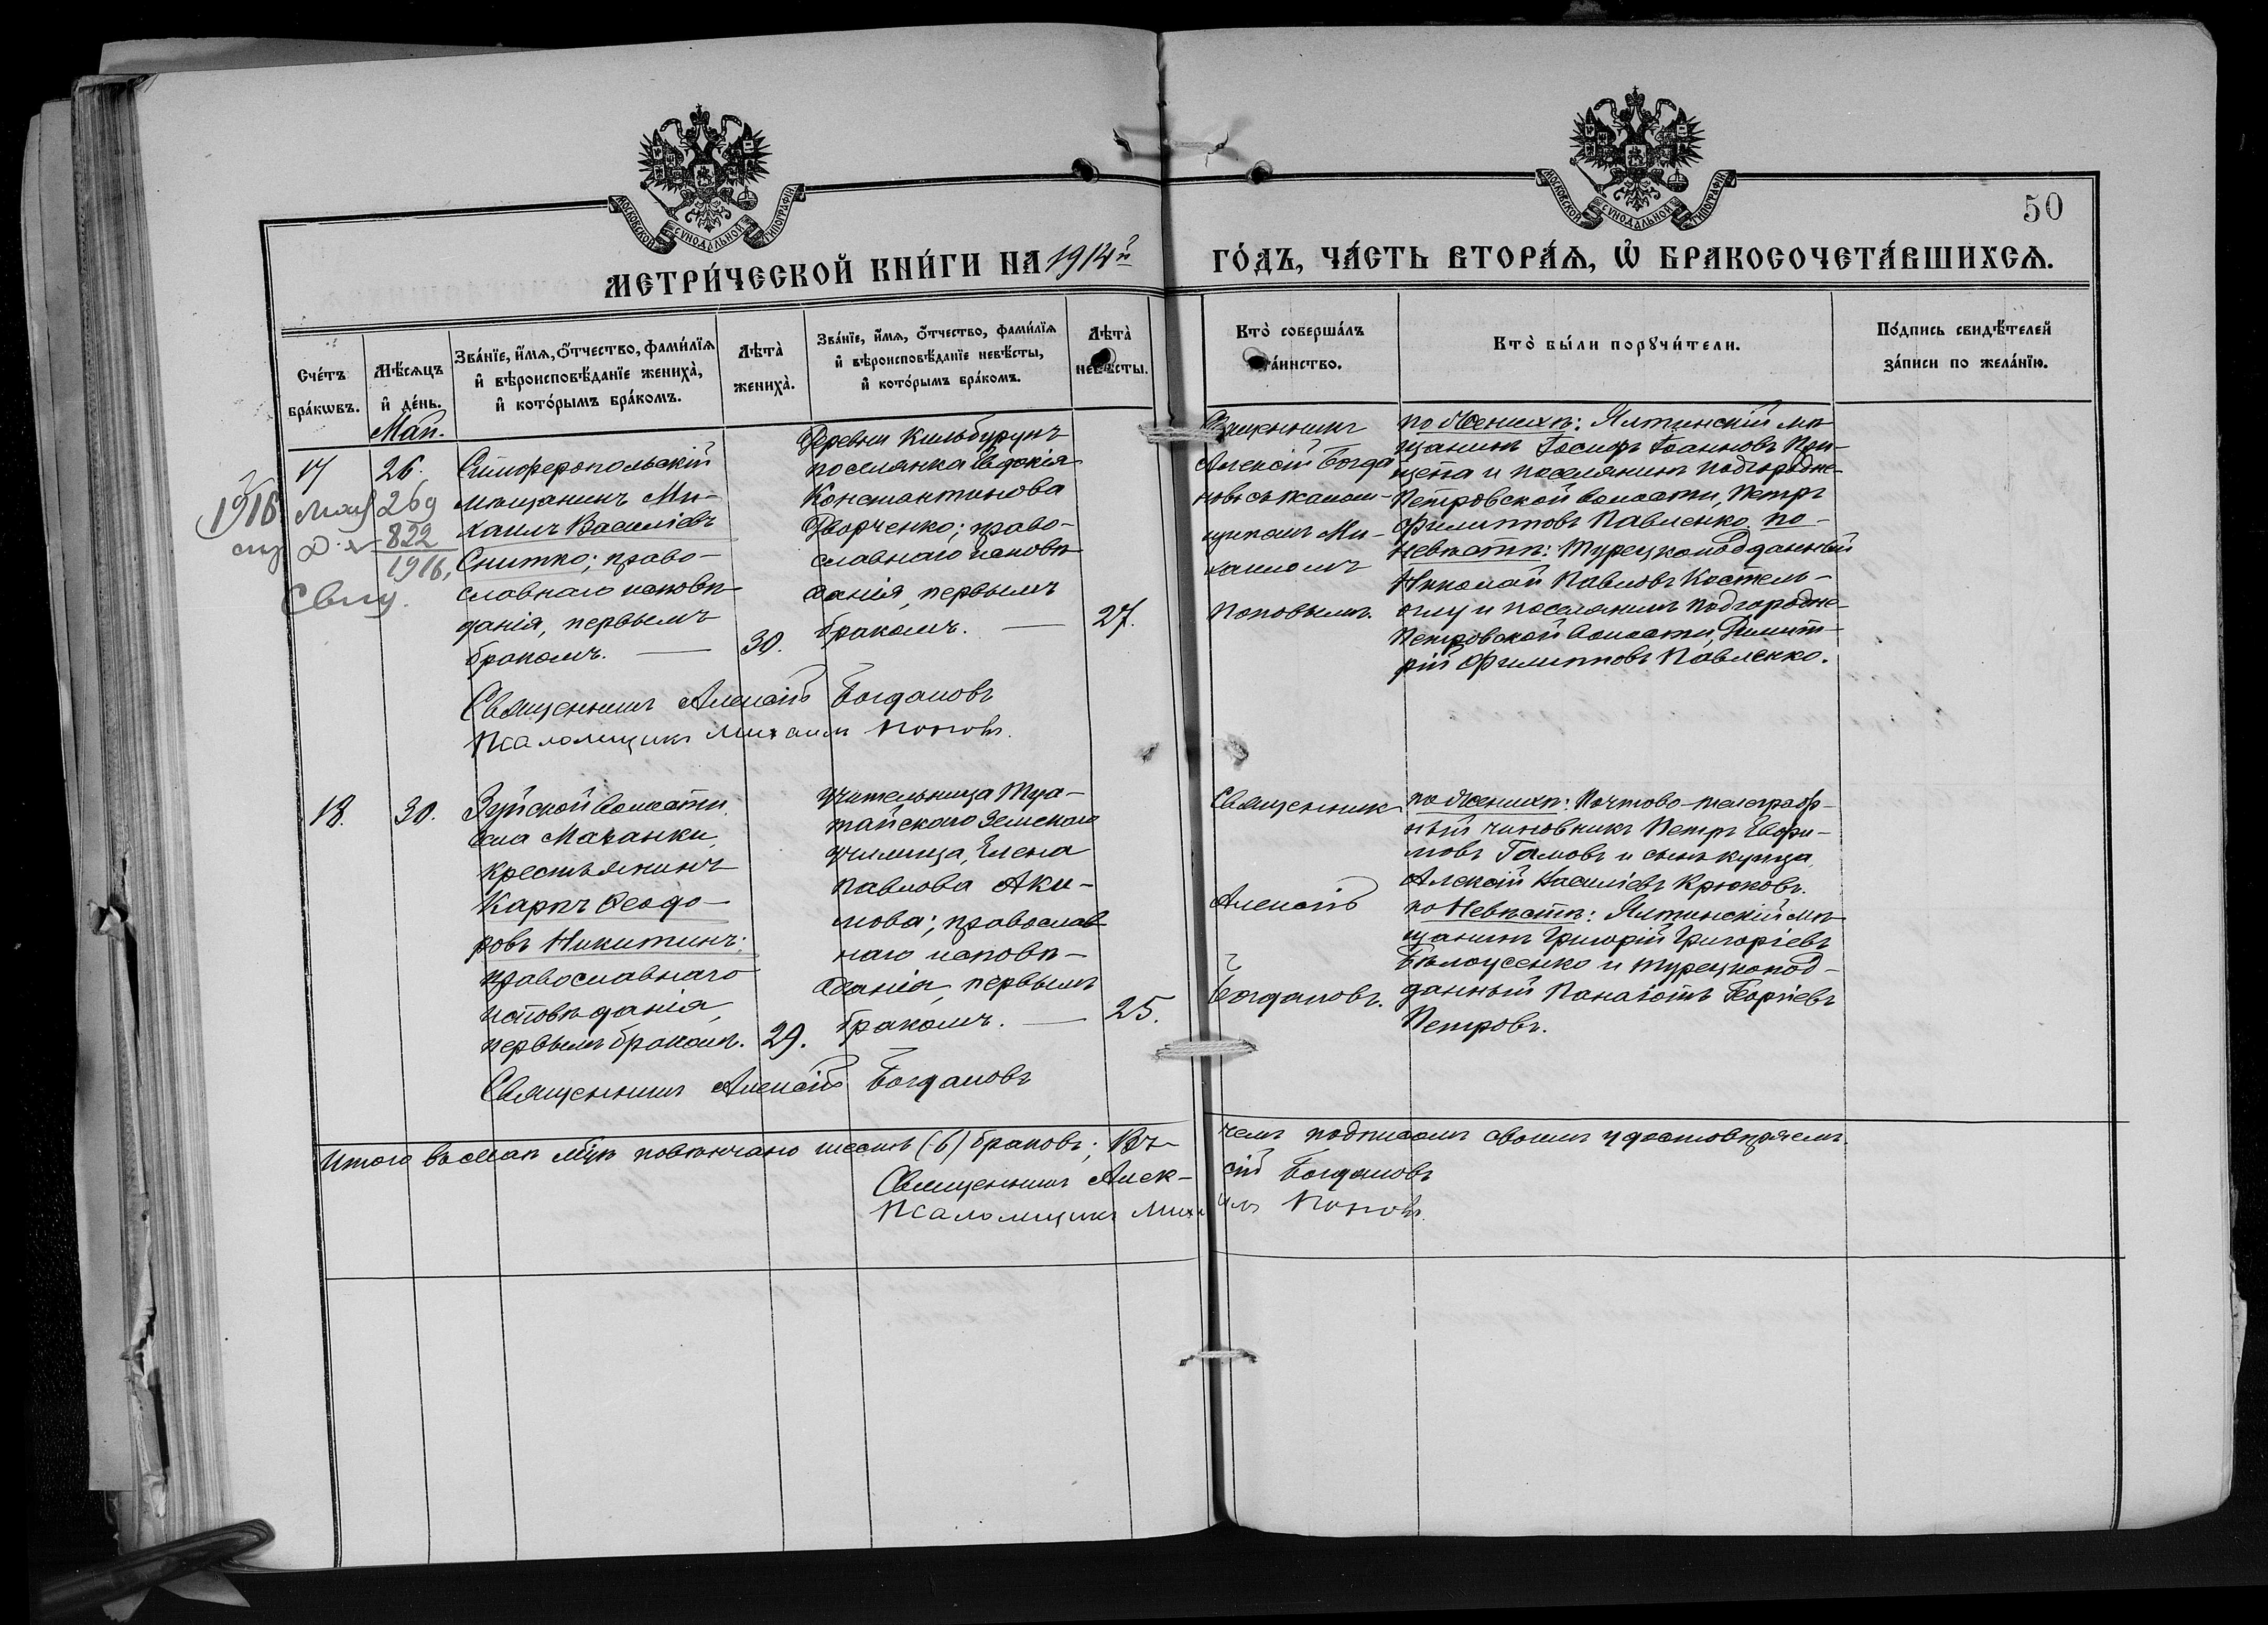 МОСКОВСКОЙ СѴНОДАЛЬНОЙ ТИПОГРАФІИ
МОСКОВСКОЙ СѴНОДАЛЬНОЙ ТИПОГРАФІИ
50
МЕТРИ́ЧЕСКОЙ КНИ́ГИ НА 1914й ГО́ДЪ, ЧА́СТЬ ВТОРА́Ѧ, Ѡ҆ БРАКОСОЧЕТА́ВШИХСѦ.
Сче́тъ бра́кѡвъ.
Мѣ́сѧцъ и҆ де́нь.
Зва́нїе, и҆́мѧ, ѻ҆́тчество, фами́лїѧ и҆ вѣроисповѣ́данїе жениха̀, и҆ кото́рымъ бра́комъ.
Лѣта̀ жениха̀.
Зва́нїе, и҆́мѧ, ѻ҆́тчество, фами́лїѧ и҆ вѣроисповѣ́данїе невѣ́сты, и҆ кото́рымъ бра́комъ.
Лѣта̀ невѣ́сты.
Кто̀ соверша́лъ та́инство.
Кто̀ бы́ли порꙋчи́тели.
По́дпись свидѣ́телей за́писи по жела́нїю.
Май.
17
26.
1916
Мая 269
822
1916,
Симферопольскій
мѣщанинъ Ми-
хаилъ Василіевъ
Снитко; право-
славнаго исповѣ-
данія, первымъ
бракомъ. —
30.
Деревни Кильбурунъ
поселянка Евдокія
Константинова
Дворченко; право-
славнаго исповѣ-
данія, первымъ
бракомъ. —
27.
Священникъ
Алексій Богда
новъ съ псалом-
щикомъ Ми-
хаиломъ
Поповымъ.
по Женихѣ: Ялтинскій мѣ-
щанинъ Іосифъ Іоанновъ При-
щепа и поселянинъ Подгородне-
Петровской волости, Петръ
Филипповъ Павленко, по-
Невѣстѣ: Турецкоподданный
Николай Павловъ Костель-
оглу и поселянинъ Подгородне-
Петровской волости, Димит-
рій Филипповъ Павленко.
Священникъ Алексій Богдановъ
Псаломщикъ Михаилъ Поповъ.
18.
30.
Зуйской волости
села Мазанки,
крестьянинъ
Карпъ Ѳеодо-
ровъ Никитинъ;
православнаго
исповѣданія,
первымъ бракомъ.
29.
Учительница Туа-
тайскаго Земскаго
училища, Елена
Павлова Аки-
мова; православ
наго исповѣ-
данія, первымъ
бракомъ. —
25.
Священникъ
Алексій
Богдановъ.
по Женихѣ: Почтово-телеграф-
ный чиновникъ Петръ Ефи-
мовъ Гамовъ и сынъ купца
Алексій Василіевъ Крюковъ.
по Невѣстѣ: Ялтинскій мѣ-
щанинъ Григорій Григоріевъ
Бѣлоусенко и турецкопод-
данный Панаіотъ Георгіевъ
Петровъ.
Священникъ Алексій Богдановъ
Итого въ Маѣ мцѣ повѣнчано шесть (6) браковъ; Въ чемъ подписомъ своимъ удостовѣряемъ.
Священникъ Алексій Богдановъ
Псаломщикъ Михаилъ Поповъ.